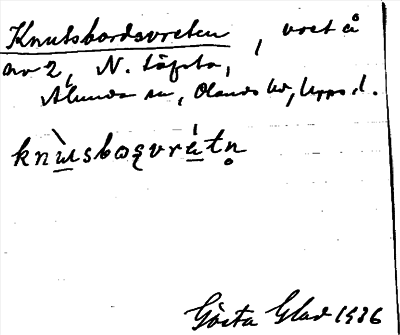 Knutsbordsvreten, vret å
nr 2, N. Löfsta,
Alunda sn, Olands hd, Upps. l.
knù̱sboȿvré̱tn̥
Gösta Glad 1936